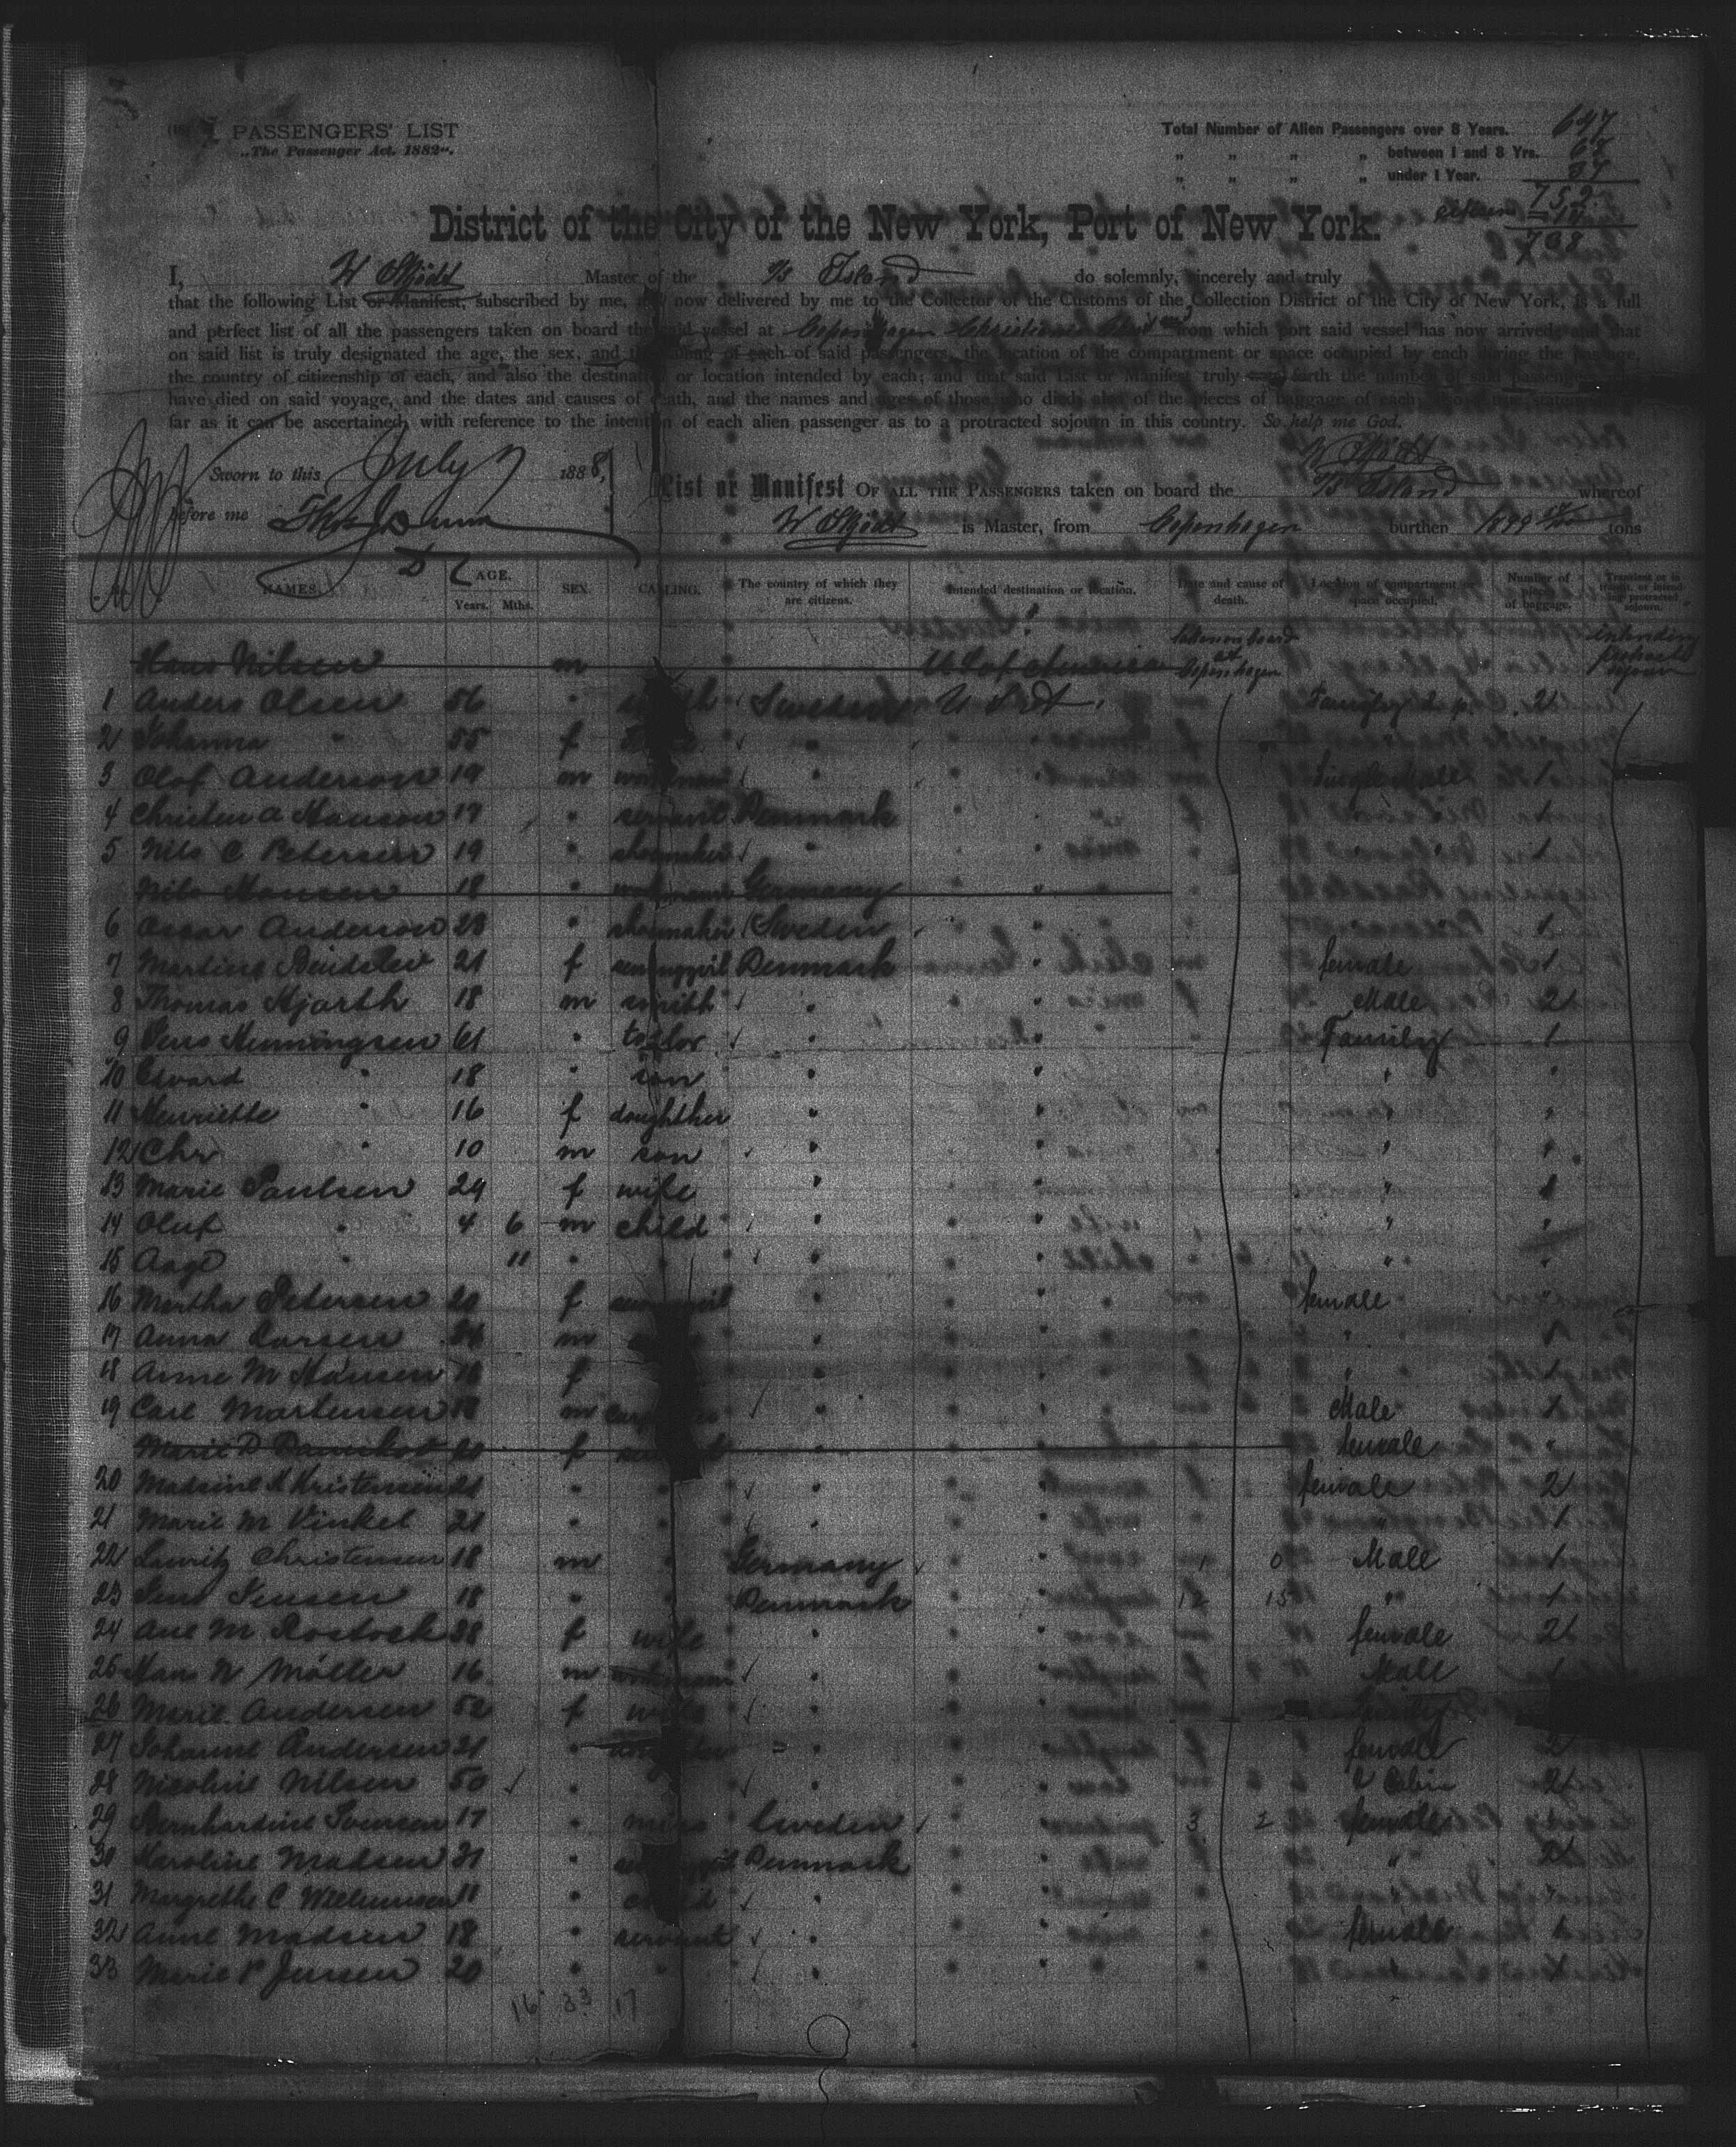 PASSENGERS' LIST
„The Passenger Act. 1882".
Total Number of Alien Passengers over 8 Years. 647
„ „ „ „ between 1 and 8 Yrs.
„ „ „ „ under 1 Year.
752
708
District of the City of the New York, Port of New York.
I, W Skjödt Master of the S/s Island do solemnly, sincerely and truly
that the following List or Manifest, subscribed by me, now delivered by me to the Collector of the Customs of the Collection District of the City of New York, is a full
and perfect list of all the passengers taken on board the said vessel at Copenhagen Christiania from which port said vessel has now arrived; and that
on said list is truly designated the age, the sex, and the calling of each of said passengers, the location of the compartment or space occupied by each during the passage,
the country of citizenship of each, and also the destination or location intended by each; and that said List or Manifest truly sets forth the number of said passengers
have died on said voyage, and the dates and causes of death, and the names and ages of those who died; also of the pieces of baggage of each; also a true statement
far as it can be ascertained, with reference to the intention of each alien passenger as to a protracted sojourn in this country. So help me God.
W Skjödt
Sworn to this July 7 1888,
before me
List or Manifest OF ALL THE PASSENGERS taken on board the S/s Island whereof
W Skjödt is Master, from Copenhagen burthen tons
NAMES. AGE. Years. Mths. SEX. CALLING. The country of which they are citizens. Intended destination or location. Date and cause of death. Location of compartment or space occupied. Number of pieces of baggage. Transient or in transit, or intending protracted sojourn.
Hans Nilsen m U. S. of America Copenhagen intending protracted sojourn
1 Anders Olsen 56 " Sweden U S A Family 2
2 Johanna " 55 f " "
3 Olof Anderson 19 m workman " " Single Male 1
4 Christen A Hanson 17 " servant Denmark " " 1
5 Nils C Petersen 19 " shoemaker " " " 1
Nils Hansen 18 " workman Germany "
6 Oscar Anderson 28 " shoemaker Sweden " " 1
7 Martine Beidslev 21 f Denmark " female 1
8 Thomas Hjorth 18 m smith " " Male 2
9 Jens Henningsen 61 " tailor " " Family 1
10 Edvard " 18 " son " " " "
11 Henriette " 16 f doughther " " " "
12 Chr " 10 m son " " " "
13 Marie Paulsen 29 f wife " " " 1
14 Oluf " 4 6 m child " " " "
15 Aage " 11 " " " " " "
16 Martha Petersen f " " female "
17 Anna Larsen m " " " 1
18 Anne M Hansen f " " " 1
19 Carl Martensen m " " Male 1
Marie D f " " female "
20 Madsine K Kristensen 21 " " " " female 2
21 Marie M Vinkel 21 " " " " " 1
22 Lauritz Christensen 18 m " Germany " Male 1
23 Jens Jensen 18 " " Denmark " " 1
24 Ane M Rostock 28 f wife " " female 2
25 Hans N Möller 16 m workman " " Male 1
26 Marie Andersen 52 f wife " "
27 Johanne Andersen 21 " " " female 2
28 Nicoline Nilsen 50 " " " 2 Cabin 2
29 Bernhardine Svensen 17 " miss Sweden " female 1
30 Karoline Madsen 21 " Denmark " " 2
31 Margrethe C Williamsen 11 " child " " " "
32 Anne Madsen 18 " servant " " female 1
33 Marie P Jensen 20 " " " " " 1
16 33 17